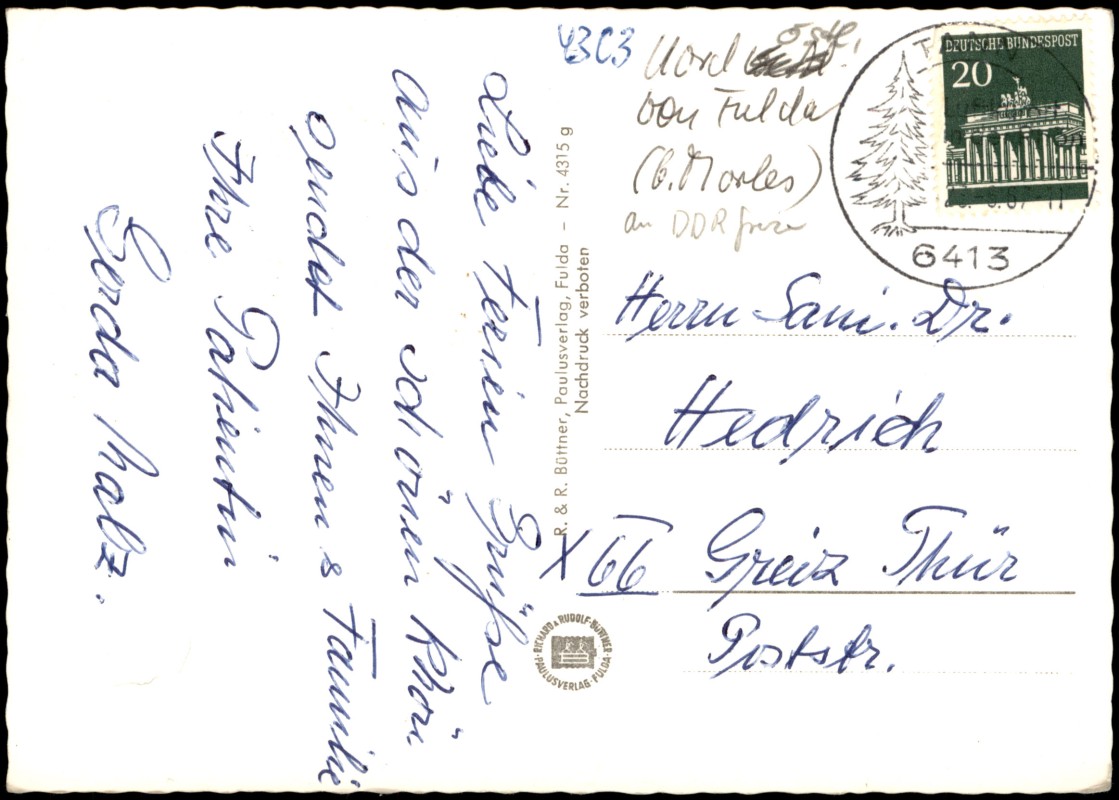 Liebe Ferien Grüße
aus der schönen Rhön
sendet Ihnen & Familie
Ihre Patientin
Gerda Malz.
R. & R. Büttner, Paulusverlag, Fulda – Nr. 4315 g
Nachdruck verboten
RICHARD & RUDOLF BÜTTNER
PAULUSVERLAG · FULDA
43C3
Nord
östl.
von Fulda
(b. Morles)
an DDR
DEUTSCHE BUNDESPOST
20
6413
Herrn Sani. Dr.
Hedrich
X 66 Greiz Thür
Poststr.